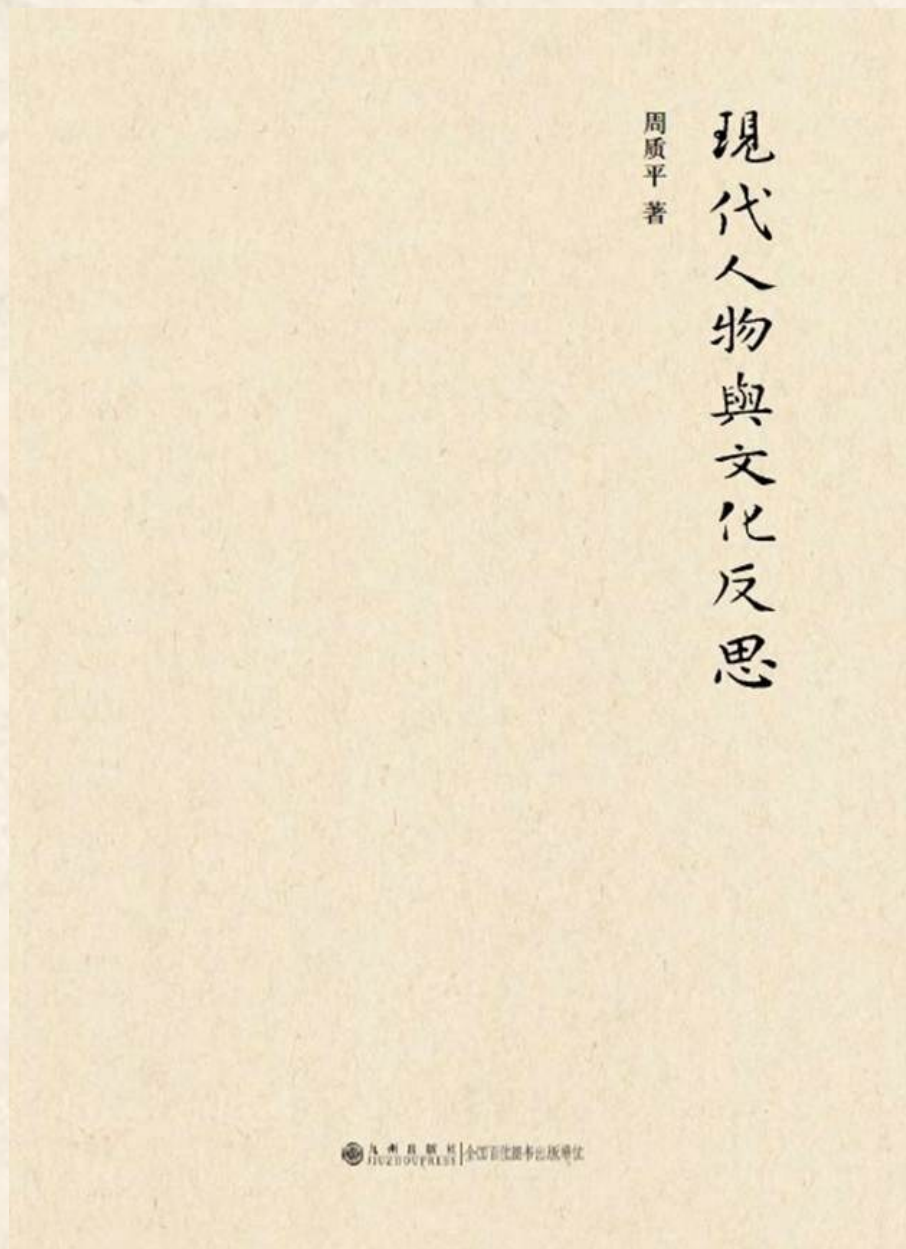 現代人物與文化反思
周质平 著
九州出版社
JIUZHOUPRESS
全国百佳图书出版单位